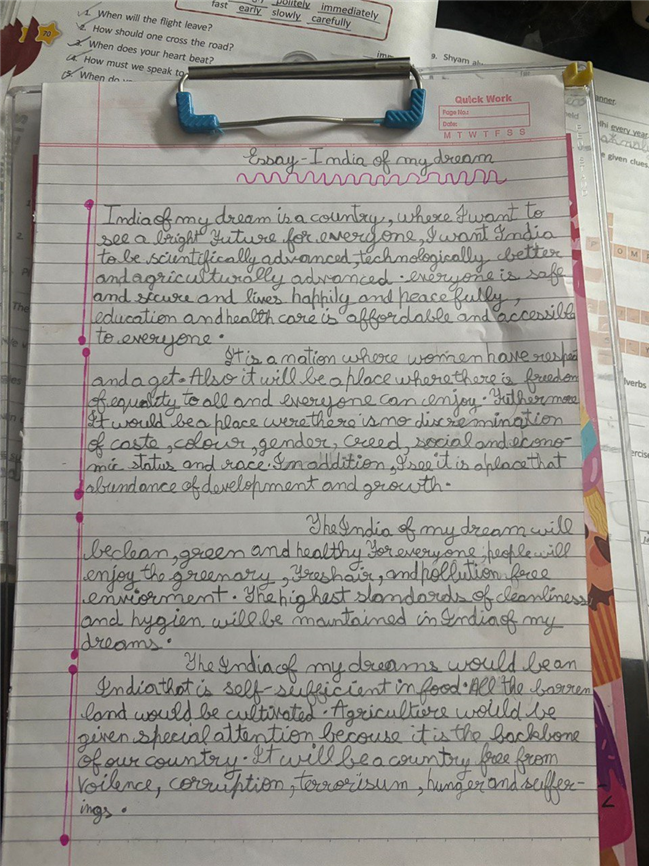 fast early politely slowly immediately carefully
1. When will the flight leave?
2. How should one cross the road?
3. When does your heart beat?
4. How must we speak to
5. When do
70
9. Shyam
every year.
given clues.
Quick Work
Page No.:
Date:
M T W T F S S
Essay - India of my dream
India of my dream is a country, where I want to
see a bright future for everyone, I want India
to be scientifically advanced, technologically better
and agriculturally advanced. everyone is safe
and secure and lives happily and peacefully,
education and health care is affordable and accessible
to everyone.
It is a nation where women have respect
and a get. Also it will be a place where there is freedom
of equality to all and everyone can enjoy. Futhermore
It would be a place were there is no discremination
of caste, colour, gender, creed, social and econo-
mic status and race. In addition, I see it is a place that
abundance of development and growth.
The India of my dream will
be clean, green and healthy for everyone people will
enjoy the greenary, fresh air, and pollution free
enviorment. The highest standards of cleanliness
and hygien will be maintained in India of my
dreams.
The India of my dreams would be an
India that is self-sufficient in food. All the barren
land would be cultivated. Agriculture would be
given special attention becouse it is the backbone
of our country. It will be a country free from
voilence, corruption, terrorisum, hunger and suffer-
ings.